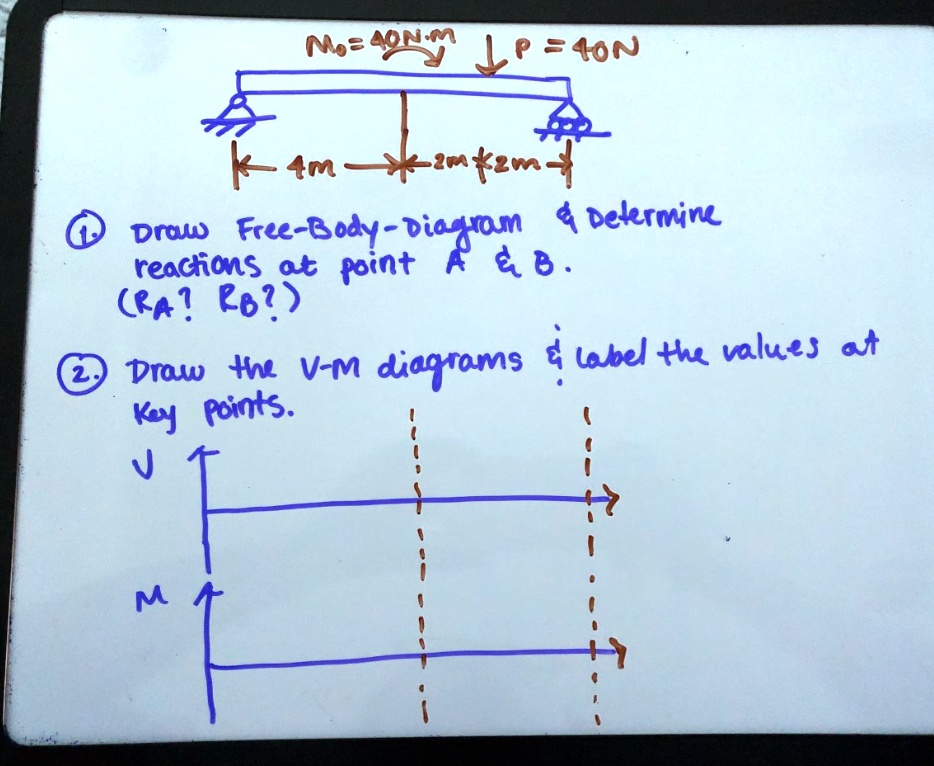 M₀=40N·m P=40N
4m 2m 2m
1. Draw Free-Body-Diagram & Determine
reactions at point A & B.
(RA? RB?)
2. Draw the V-M diagrams & label the values at
Key points.
V
M